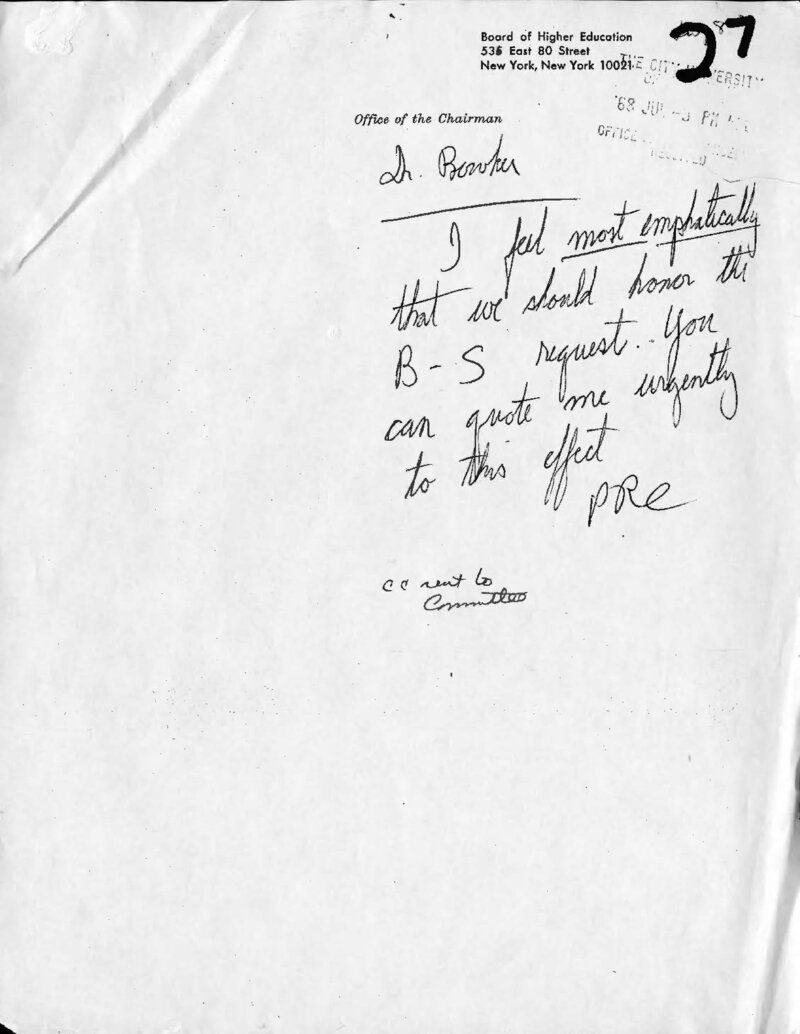 Board of Higher Education
535 East 80 Street
New York, New York 10021
27
THE CITY UNIVERSITY
'68 JUL PM
OFFICE
RECEIVED
Office of the Chairman
Dr. Bowker
I feel most emphatically
that we should honor the
B-S request. You
can quote me urgently
to this effect
PRC
cc sent to
Committee